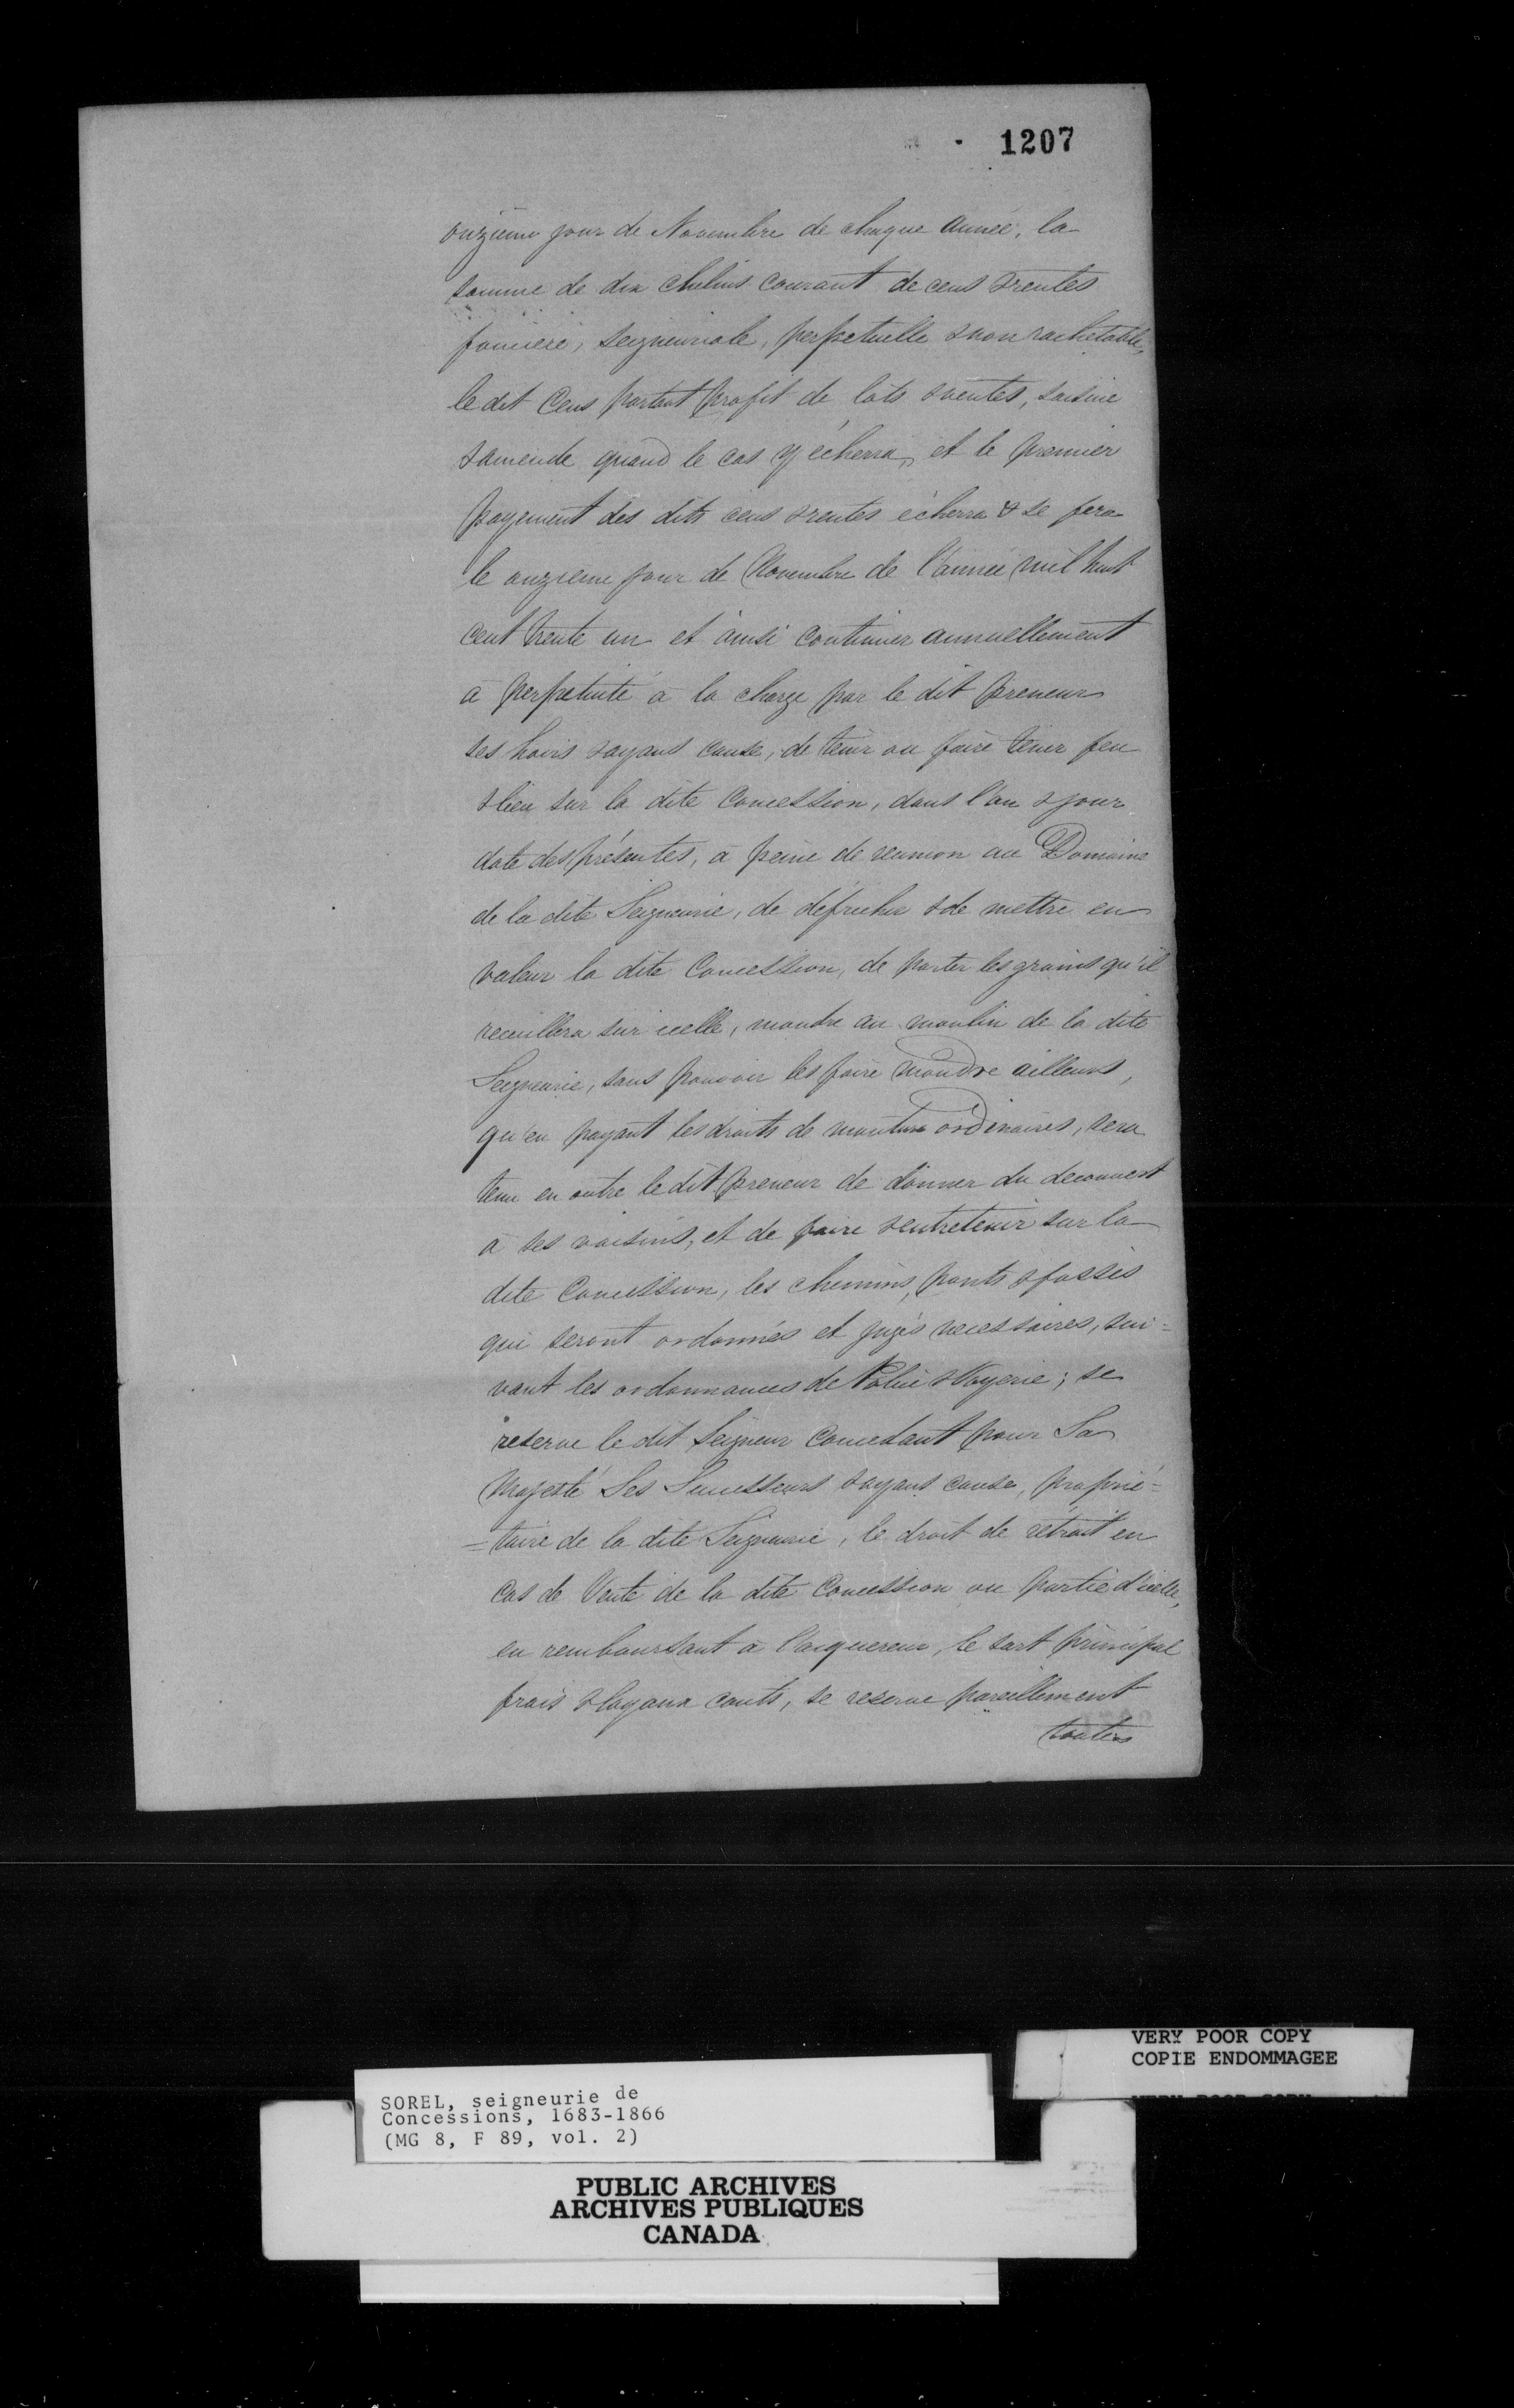 1207
onzieme jour de Novembre de chaque année, la
somme de dix chelins courant de cens & rentes
fonciere, seigneuriale, perpetuelle & non rachetable,
le dit Cens portant profit de lots & ventes, saisine
& amende quand le cas y écherra, et le premier
payement des dits cens & rentes écherra & se fera
le onzieme jour de Novembre de l'année mil huit
cent trente un et ainsi continuer annuellement
à perpetuité à la charge par le dit preneur
ses hoirs & ayans cause, de tenir ou faire tenir feu
& lieu sur la dite Concession, dans l'an & jour
date des présentes, à peine de reunion au Domaine
de la dite Seigneurie, de défricher & de mettre en
valeur la dite Concession, de porter les grains qu'il
recuillera sur icelle, moudre au moulin de la dite
Seigneurie, sans pouvoir les faire moudre ailleurs,
qu'en payant les droits de mouture ordinaires, sera
tenu en outre le dit preneur de donner du decouvert
à ses voisins, et de faire & entretenir sur la
dite Concession, les chemins, ponts & fossés
qui seront ordonnés et jugés necessaires, sui=
vant les ordonnances de Police & Voyerie; se
reserve le dit Seigneur Concedant pour Sa
Majesté Ses Successeurs & ayans cause, proprié=
=taire de la dite Seigneurie, le droit de rétrait en
cas de Vente de la dite Concession ou partie d'icelle,
en remboursant à l'acquereur, le sort principal
frais & loyaux couts, se reserve pareillement
toutes
VERY POOR COPY
COPIE ENDOMMAGEE
VERY POOR COPY
SOREL, seigneurie de
Concessions, 1683-1866
(MG 8, F 89, vol. 2)
PUBLIC ARCHIVES
ARCHIVES PUBLIQUES
CANADA